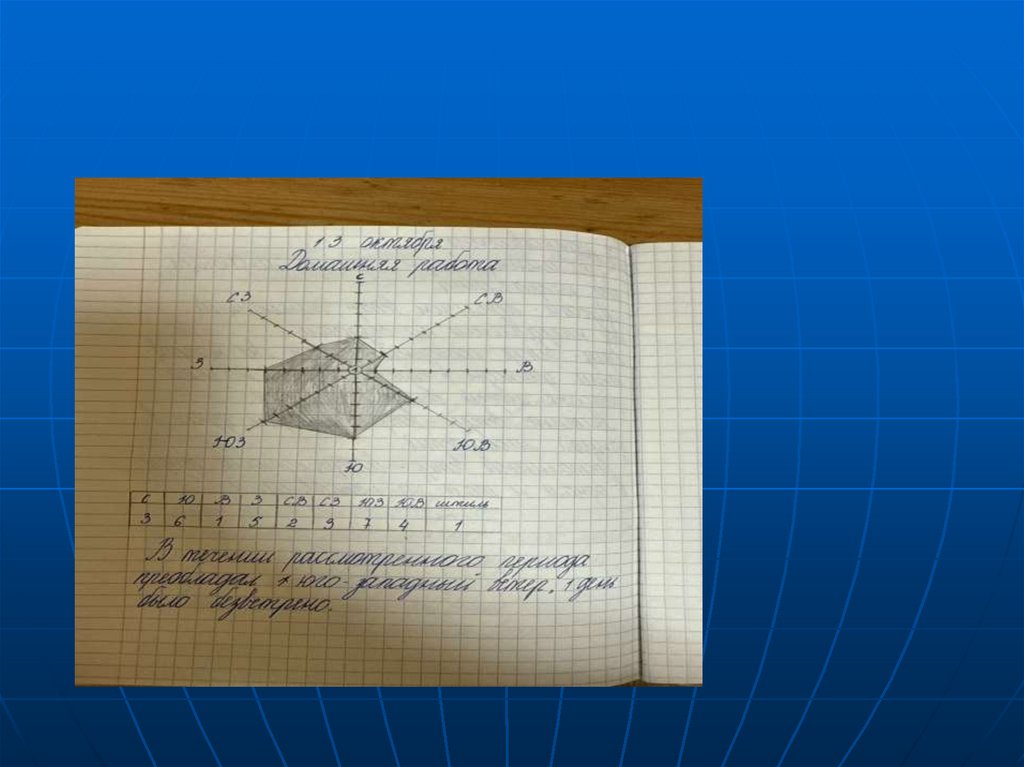 13 октября
Домашняя работа
С
СЗ СВ
З В
ЮЗ ЮВ
Ю
С Ю В З СВ СЗ ЮЗ ЮВ штиль
3 6 1 5 2 3 7 4 1
В течении рассмотренного периода
преобладал юго-западный ветер. 1 день
было безветрено.